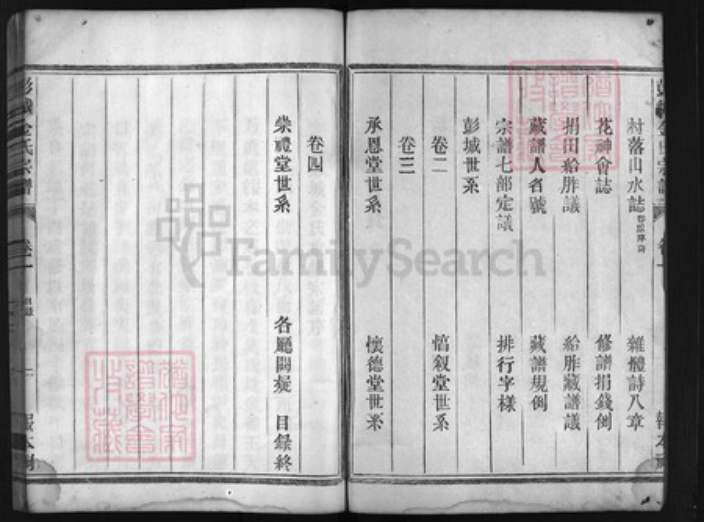 村落山水誌 雜體詩八章
花神會誌 修譜捐錢例
捐田給胙議 給胙藏譜議
藏譜人名號 藏譜規例
宗譜七部定議 排行字樣
彭城世系
卷二 惇叙堂世系
卷三
承恩堂世系 懷德堂世系
卷四
崇禮堂世系 各廳闕疑 目録終
彭城金氏宗譜 卷一 目録
FamilySearch